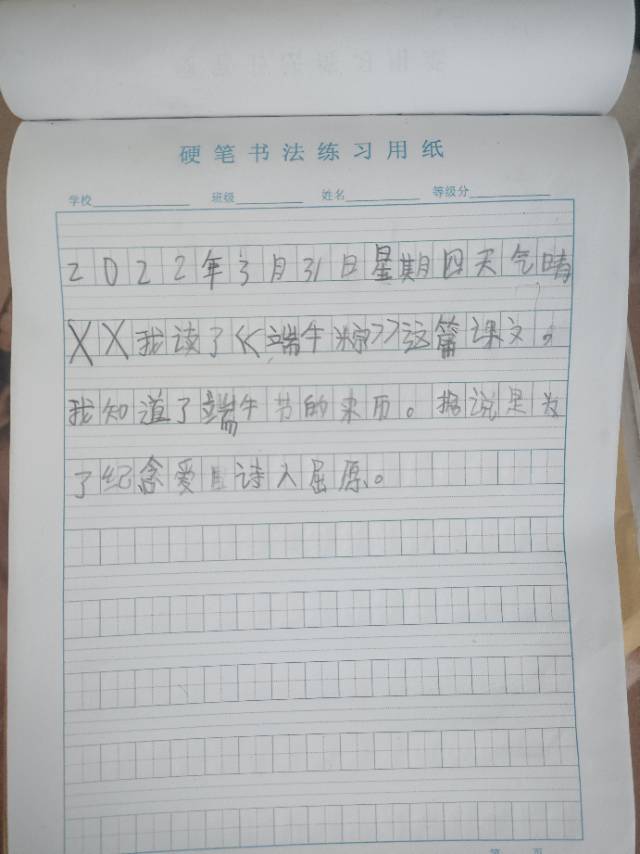 硬笔书法练习用纸
学校 班级 姓名 等级分
2022年3月31日星期四天气晴
XX我读了《端午粽》这篇课文，
我知道了端午节的来历。据说是为
了纪念爱国诗人屈原。
第 页